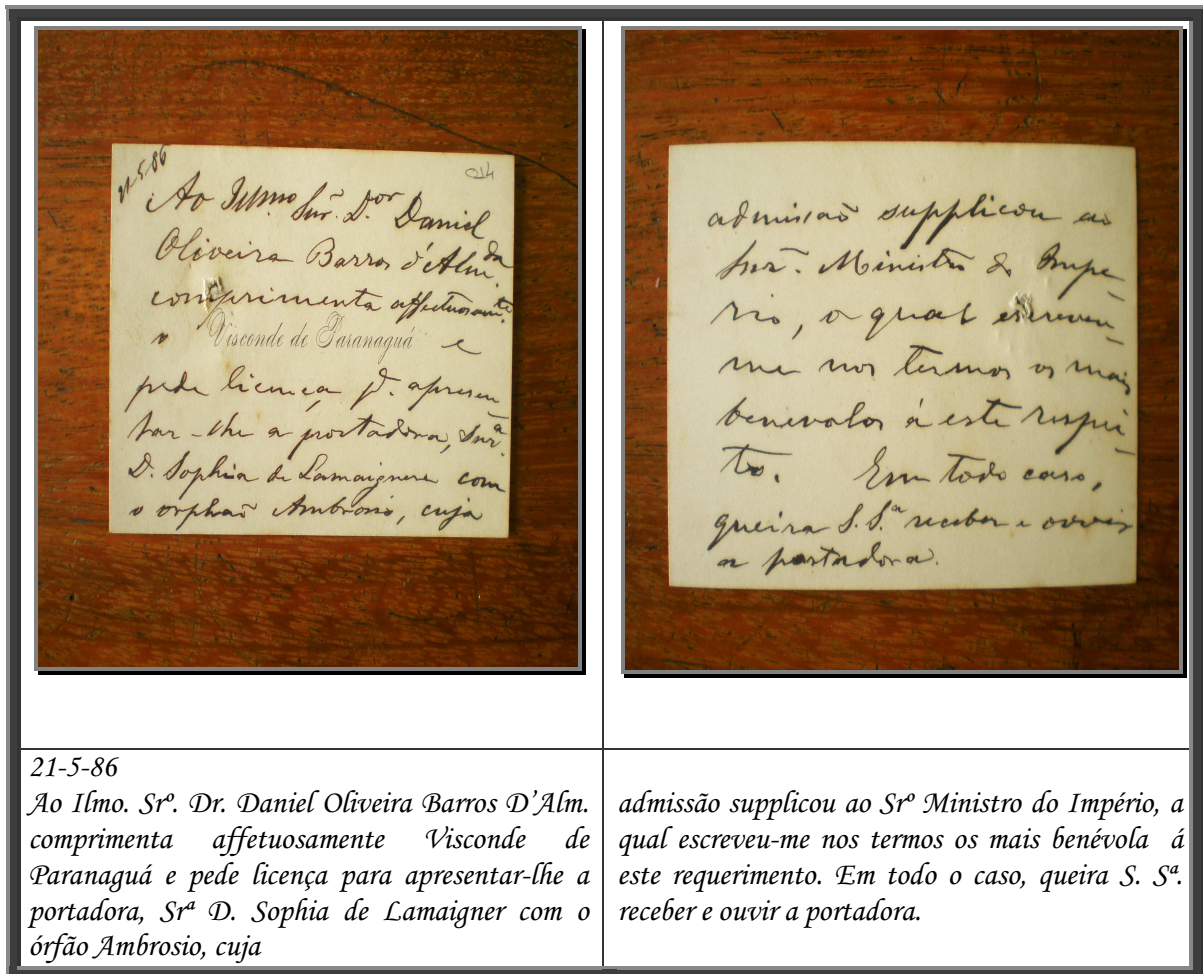 21-5-86
014
Ao Illmo Snr. D.or Daniel
Oliveira Barros d'Alm.da
comprimenta affectuosam.te
o Visconde de Paranaguá e
pede licença p.ª apresen
tar-lhe a portadora, Snr.ª
D. Sophia de Lamaignere com
o orphaõ Ambrosio, cuja
admissaõ supplicou ao
Snr. Ministro do Impe-
rio, o qual escreveu-
me nos termos os mais
benevolos á este respei-
to. Em todo caso,
queira S. S.ª receber e ouvir
a portadora.
21-5-86
Ao Ilmo. Srº. Dr. Daniel Oliveira Barros D'Alm.
comprimenta affetuosamente Visconde de
Paranaguá e pede licença para apresentar-lhe a
portadora, Srª D. Sophia de Lamaigner com o
órfão Ambrosio, cuja
admissão supplicou ao Srº Ministro do Império, a
qual escreveu-me nos termos os mais benévola á
este requerimento. Em todo o caso, queira S. Sª.
receber e ouvir a portadora.